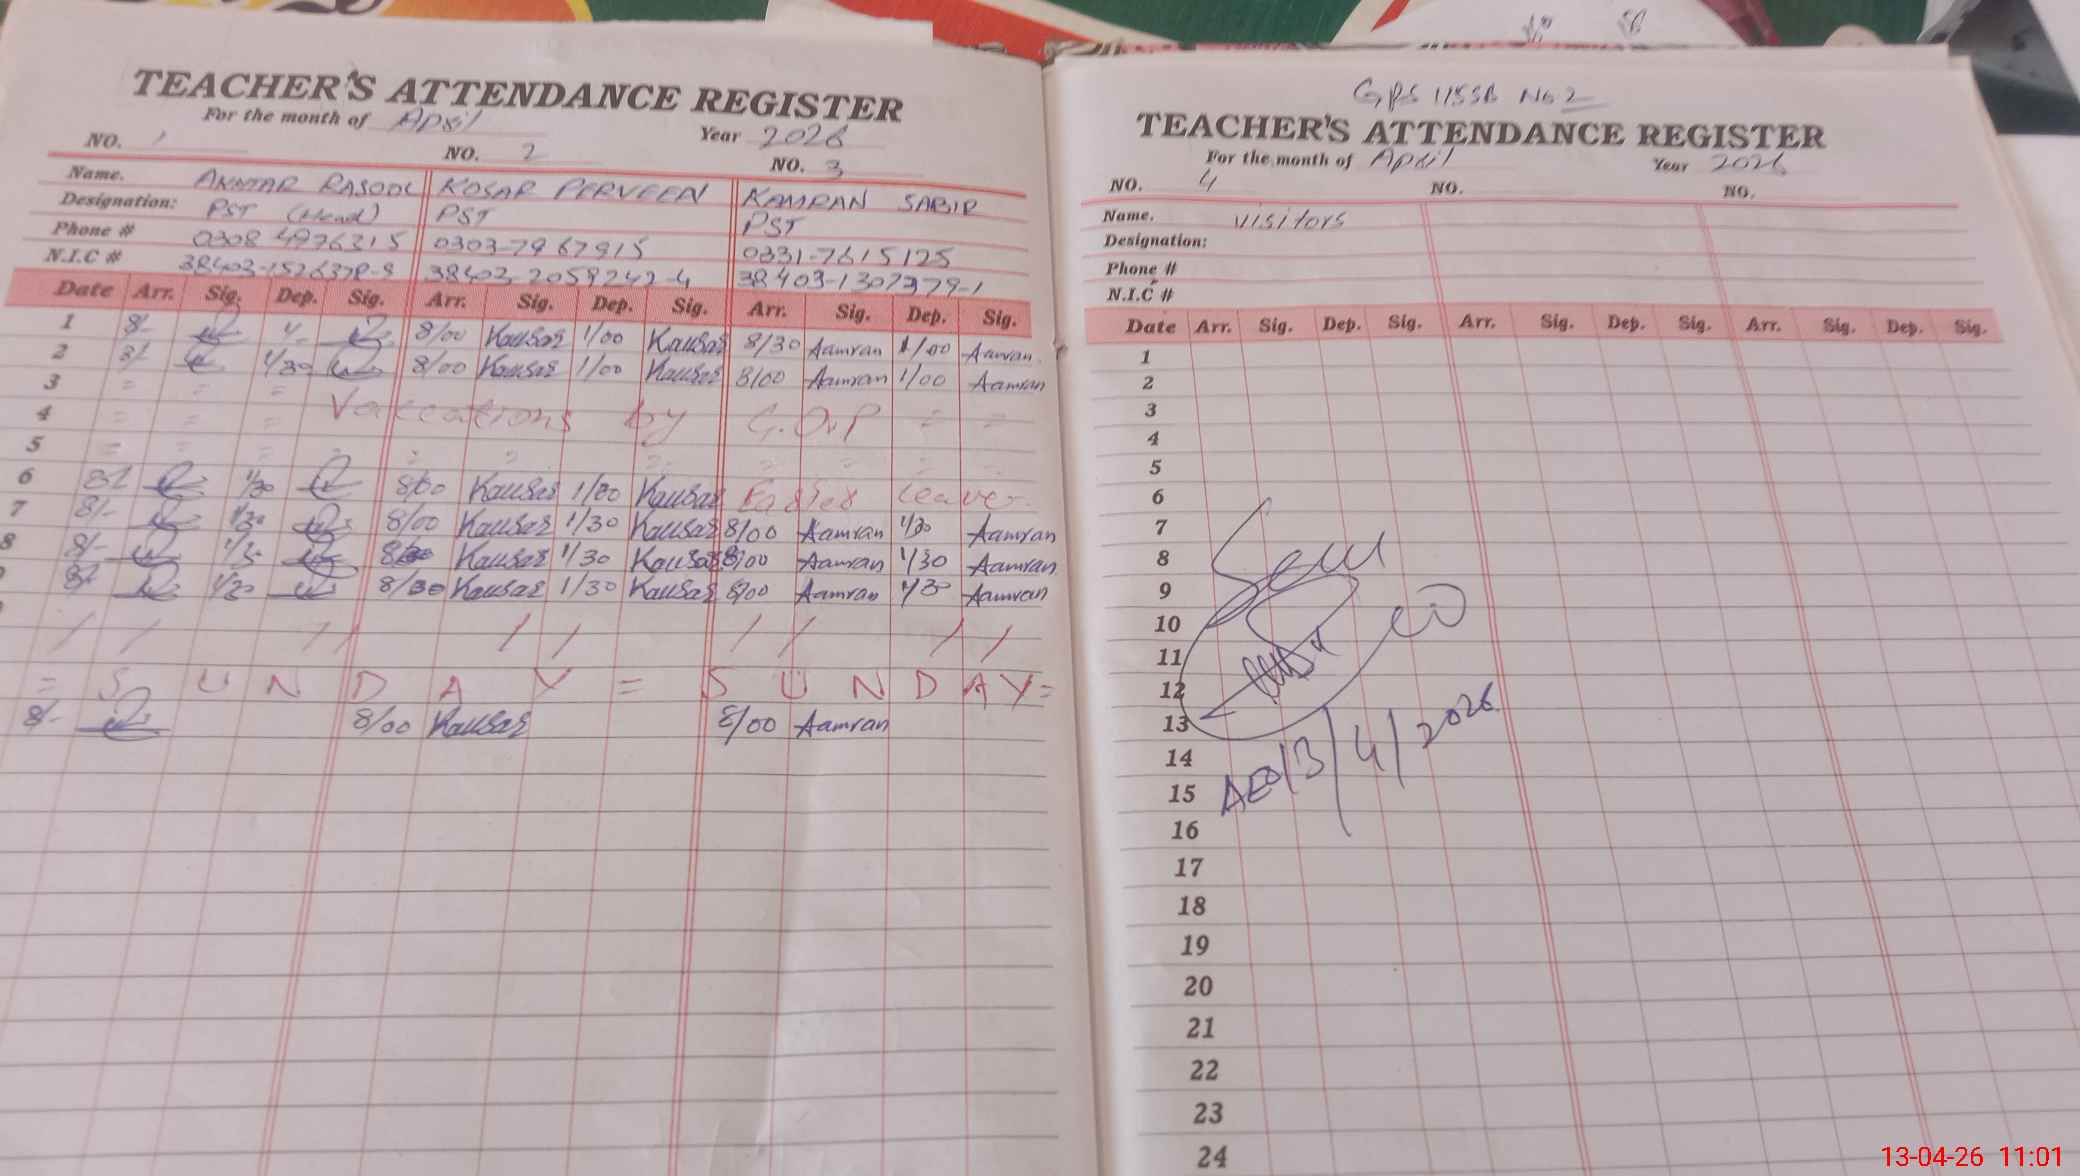 TEACHER'S ATTENDANCE REGISTER
For the month of April Year 2026
NO. 1 NO. 2 NO. 3
Name. RASOOL KOSAR PERVEEN KAMRAN SABIR
Designation: PST (Head) PST PST
Phone # 0308 4976215 0303-7967915 0331-7615125
N.I.C # 38403-1526378-8 38403-2059242-4 38403-1307379-1
Date Arr. Sig. Dep. Sig. Arr. Sig. Dep. Sig. Arr. Sig. Dep. Sig.
1 8/- 1/- 8/00 Kausar 1/00 Kausar 8/30 Aamran 1/00 Aamran
2 8/- 1/30 8/00 Kausar 1/00 Kausar 8/00 Aamran 1/00 Aamran
3 = = =
4 = = = Vaccations by G.O.P = =
5 = = = = = = = = =
6 8/- 1/30 8/00 Kausar 1/00 Kausar Easter Leave
7 8/- 1/30 8/00 Kausar 1/30 Kausar 8/00 Aamran 1/30 Aamran
8 8/- 1/30 Kausar 1/30 Kausar 8/00 Aamran 1/30 Aamran
8/- 1/30 8/30 Kausar 1/30 Kausar 8/00 Aamran 1/30 Aamran
/ / / / / / / / / /
= S U N D A Y = S U N D A Y =
8/- 8/00 Kausar 8/00 Aamran
GPS 115SB No 2
TEACHER'S ATTENDANCE REGISTER
For the month of April Year 2026
NO. 4 NO. NO.
Name. visitors
Designation:
Phone #
N.I.C #
Date Arr. Sig. Dep. Sig. Arr. Sig. Dep. Sig. Arr. Sig. Dep. Sig.
1
2
3
4
5
6
7
8 Seen
9
10
11
12
13
14
15 AEO 13/4/2026
16
17
18
19
20
21
22
23
24
13-04-26 11:01